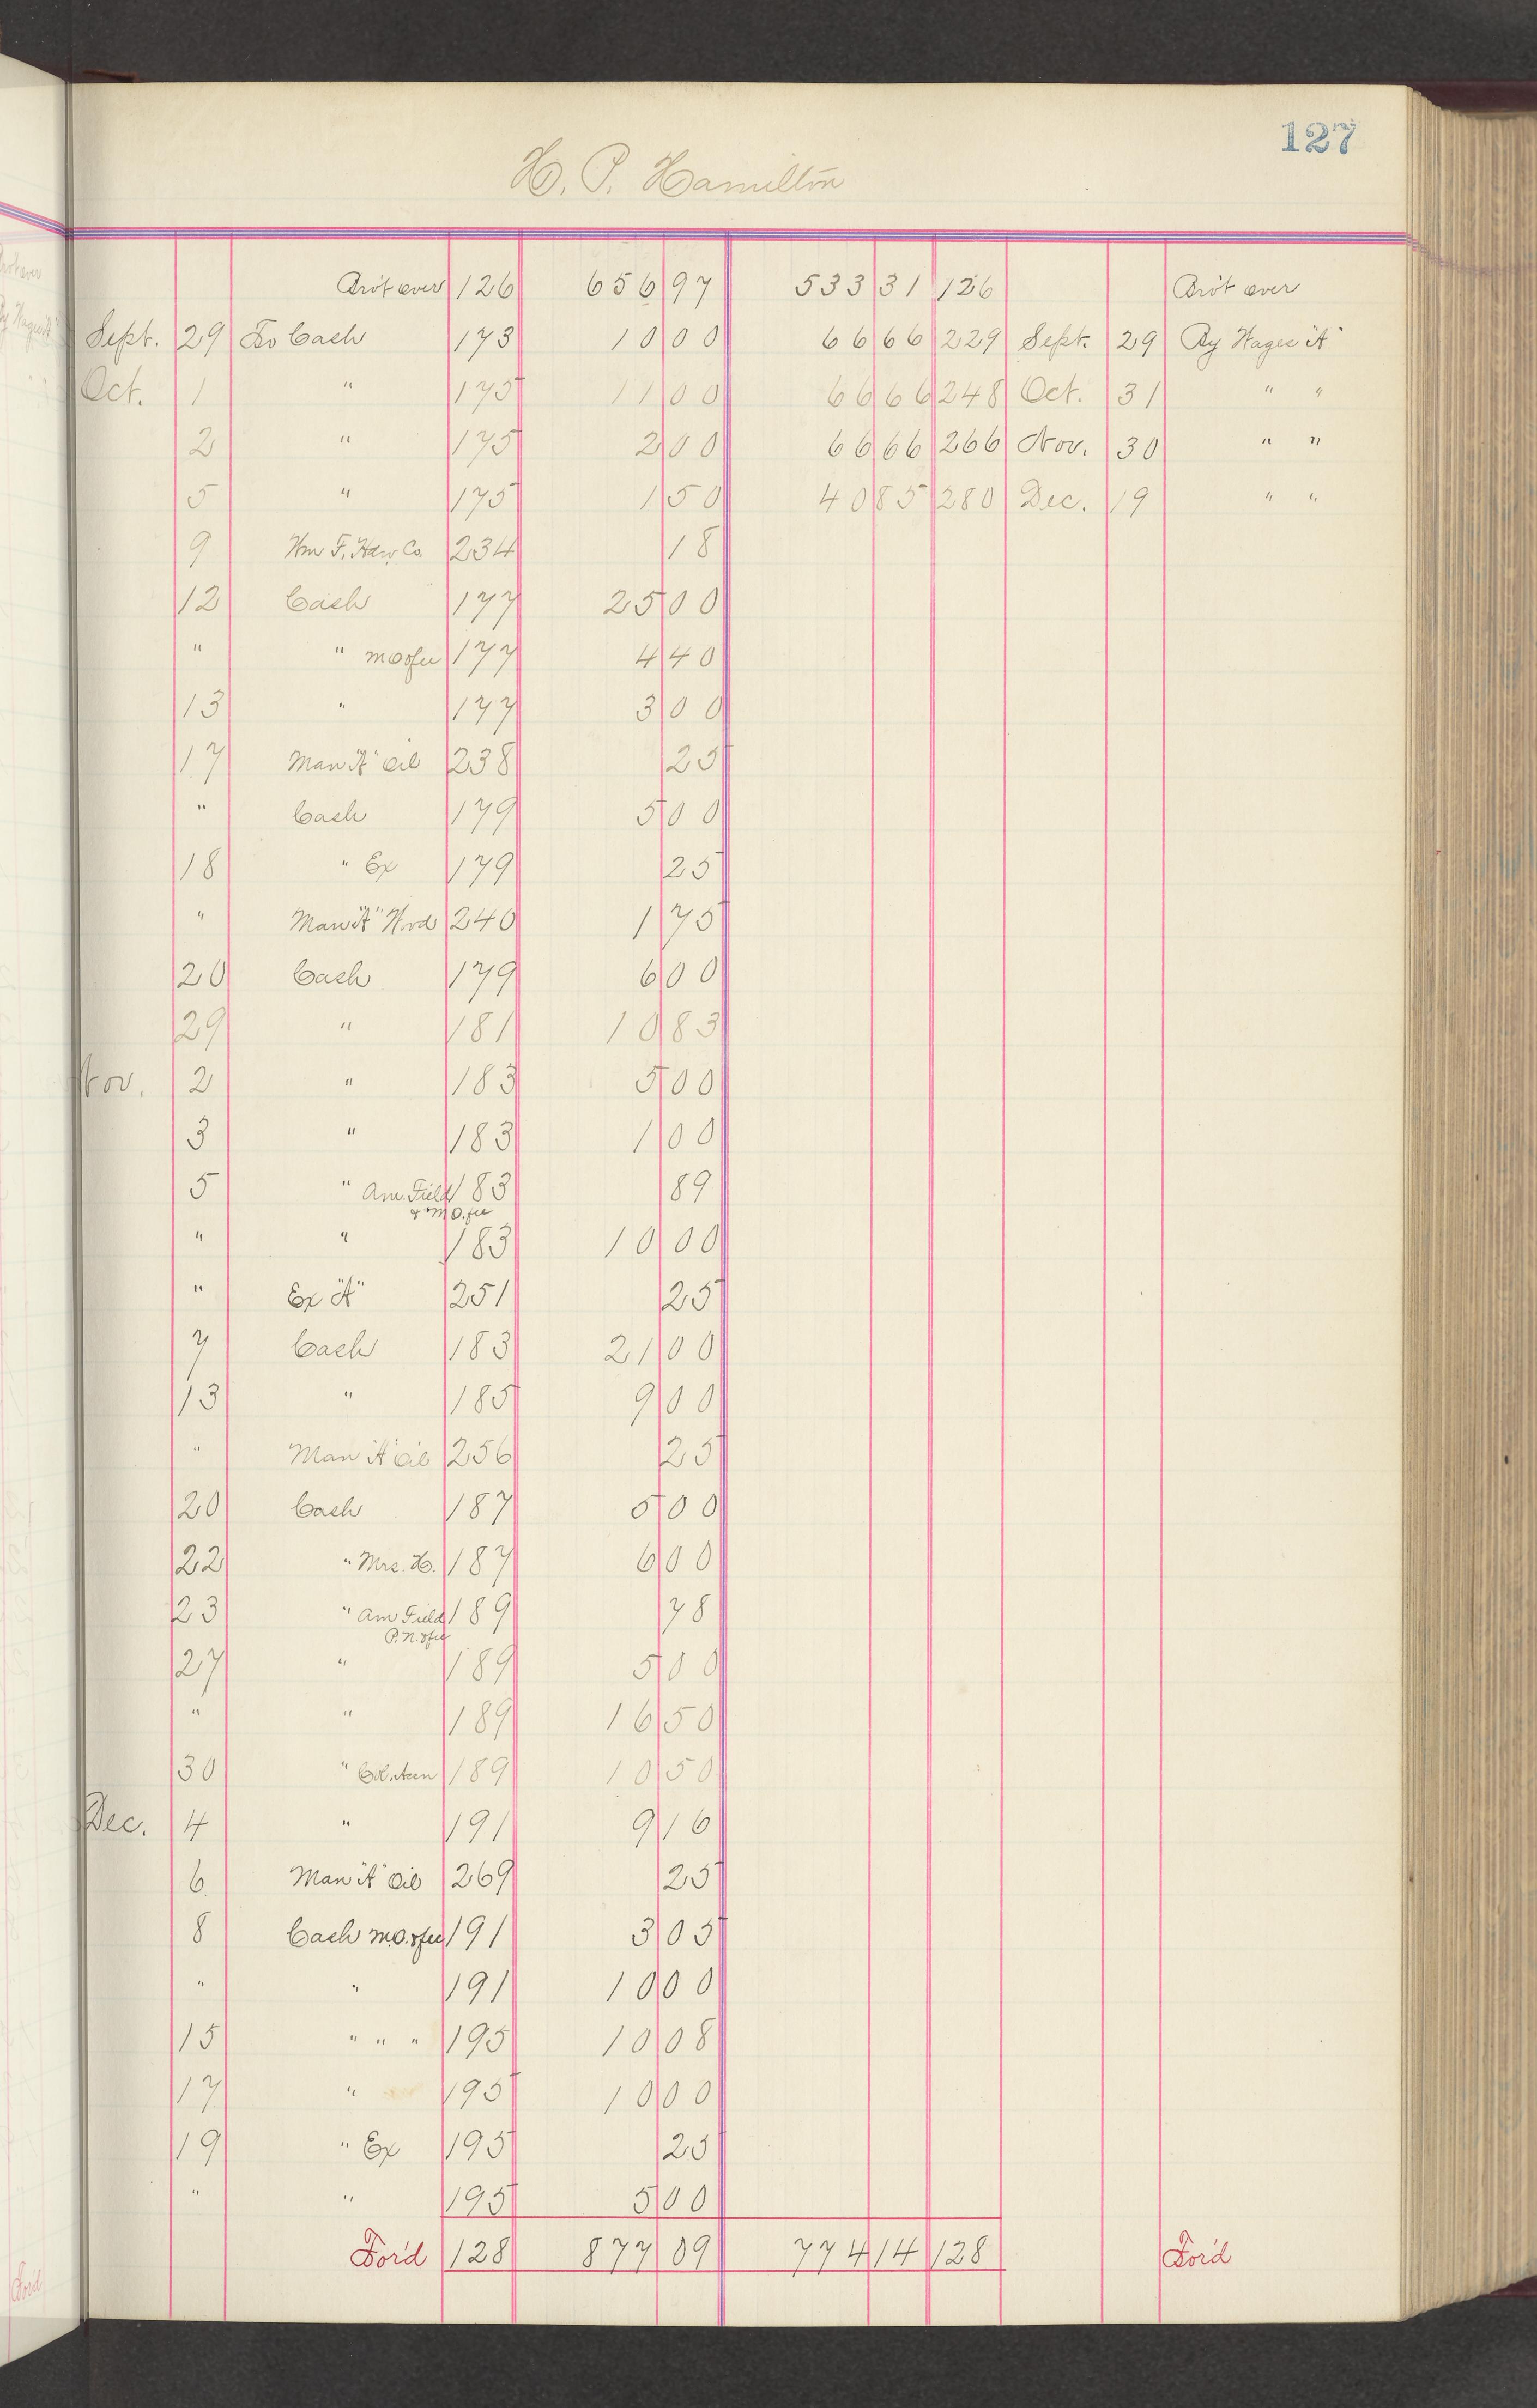 127
H. P. Hamilton
Bro't over 126 656 97 533 31 126 Bro't over
Sept. 29 To Cash 173 10 00 66 66 229 Sept. 29 By Wages "A"
Oct. 1 " 175 11 00 66 66 248 Oct. 31 " "
2 " 175 2 00 66 66 266 Nov. 30 " "
5 " 175 1 50 40 85 280 Dec. 19 " "
9 Wm F. Hdw. Co. 234 18
12 Cash 177 25 00
" " M O & fee 177 4 40
13 " 177 3 00
17 Man "A" Oil 238 25
" Cash 179 5 00
18 " Ex 179 25
" Man "A" Wod 240 1 75
20 Cash 179 6 00
29 " 181 10 83
Nov. 2 " 183 5 00
3 " 183 1 00
5 " Am. Field 183 89
& M O. fee
" " 183 10 00
" Ex "A" 251 25
7 Cash 183 21 00
13 " 185 9 00
" Man "A" Oil 256 25
20 Cash 187 5 00
22 " Mrs. H. 187 6 00
23 " Am Field 189 78
P. N. & fee
27 " 189 5 00
" " 189 16 50
30 " 189 10 50
Dec. 4 " 191 9 16
6 Man "A" Oil 269 25
8 Cash M.O. & fee 191 3 05
" " 191 10 00
15 " " " 195 10 08
17 " 195 10 00
19 " Ex 195 25
" " 195 5 00
For'd 128 877 09 774 14 128 For'd